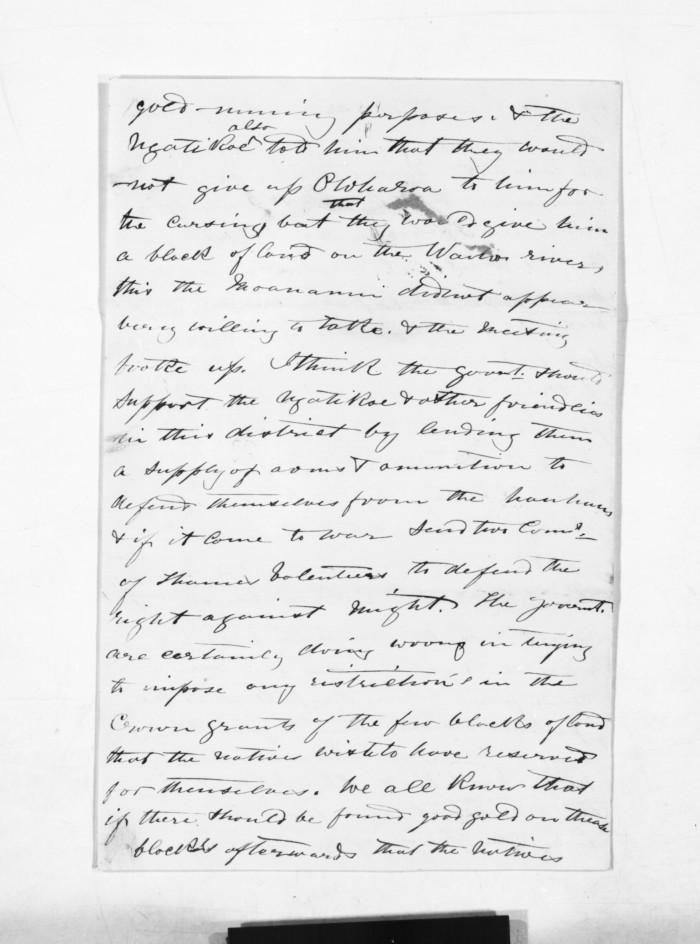 gold mining purposes. & the
also
Ngatikoe told him that they would
not give up Owharoa to him for
that
the cursing but they would give him
a block of land on the river,
this the didnot appear
very willing to take. & the meeting
broke up. I think the govnt. should
support the Ngatikoe & other friendlies
in this district by lending them
a supply of arms & amunition to
defend themselves from the hauhaus
& if it come to war send two Coms.
of Thames Volenteers to defend the
right against might. The goverent.
are certainly doing wrong in trying
to impose any ristrictions in the
Crown grants of the few blocks of land
that the natives wish to have reserved
for themselves. We all know that
if there should be found good gold on these
blocks afterwards that the natives